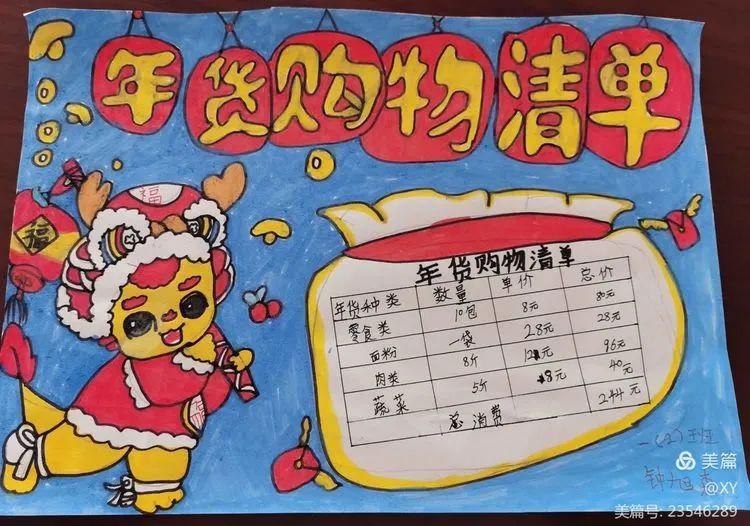 年货购物清单
福
福
年货购物清单
年货种类 数量 单价 总价
零食类 10包 8元 80元
面粉 一袋 28元 28元
肉类 8斤 12元 96元
蔬菜 5斤 8元 40元
总消费 244元
一(2)班
钟旭
美篇
@XY
美篇号: 23546289